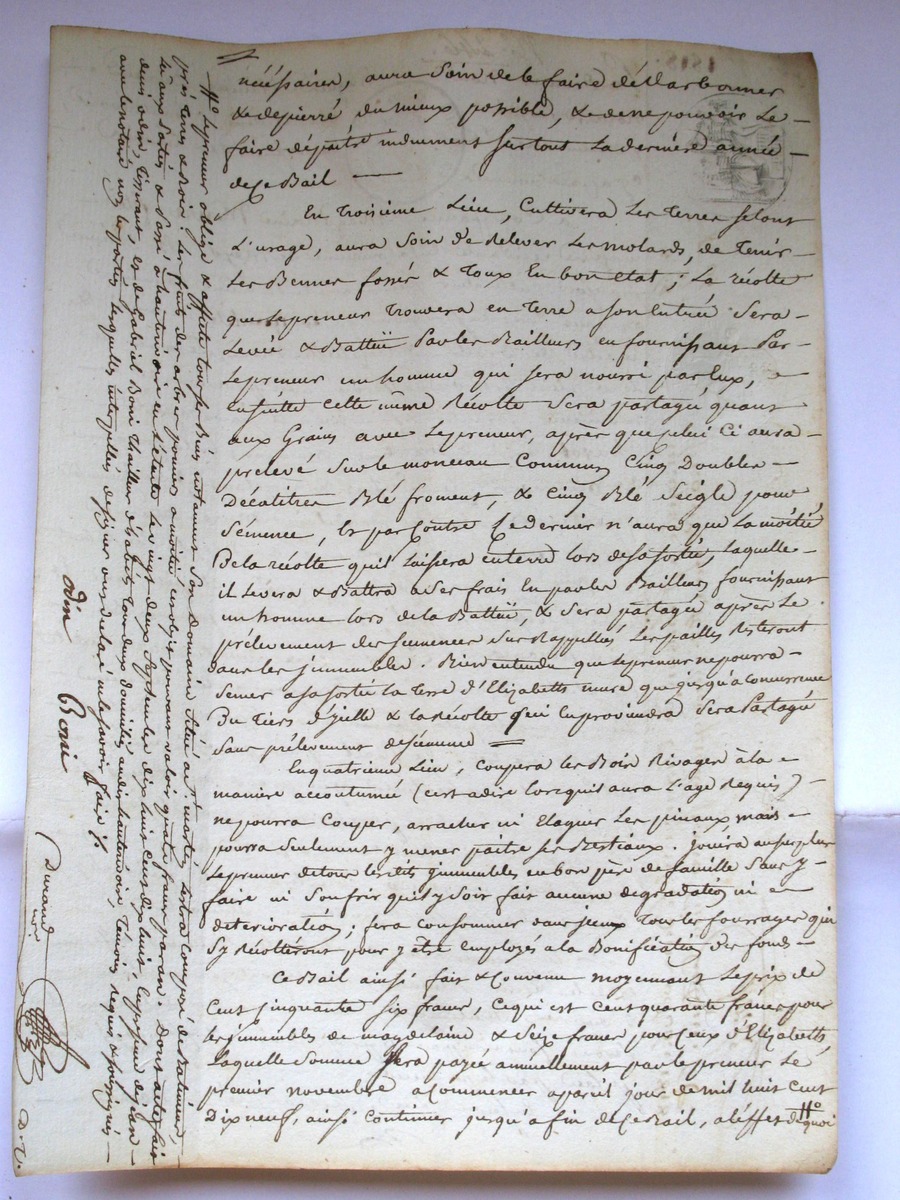 nécéssaires, aura Soin de le faire déCharbonner
& depierré du mieux possible, & de ne pouvoir le
faire dépaitre indument Surtout la derniere année
de Ce Bail
En Troisieme Lieu, Cultivera Les Terres Selont
L'usage, aura Soin de Relever Les molards, de Tenir
Les Bennes fossés & Toux En bon Etat; La récolte
que Le preneur Trouvera en Terre a Son Entrée Sera
Levée & Battüe Par les Bailleurs en fournissant Par
Le preneur un homme qui sera nourri par Eux,
Ensuitte Cette même Récolte Sera partagée quant
aux Grains avec Le preneur, après que Celui Ci aura
prelevé Sur le monceau Commun Cinq Doubles
Décalitres Blé froment, & Cinq Blé Seigle pour
Sémence, Et par Contre Ce dernier n'aura que La moitié
De la récolte qu'il Laissera enterre lors de sa Sortie, Laquelle
il Levera & Battra a Ses frais En par les Bailleurs fournissant
un homme lors de la Battüe, & Sera partagée après Le
prélevement des Semences Sus Rappellés, Les pailles Resteront
dans les Jmmeubles. Bien entendu que Le preneur ne pourra
Semer a Sa Sortie La Terre d'Elizabeth mure que jusqu'a Concurrence
Du Tiers d'jcelle & la Récolte qui En proviendra Sera Partagée
Sans prélevement de Sémence
En quatrieme Lieu, Coupera les Bois Rivages à la
maniere accoutumée (C'est adire Lorsqu'il aura L'age Requis)
ne pourra Couper, arracher ni Elaguer Les pineaux, mais
pourra Seulement y mener paitre Ses Bestiaux. Jouira au Surplus
Le preneur de tous Lesdits jmmeubles en bon père de famille Sans y
faire ni Souffrir qu'il y Soit fait aucune degradation ni
deterioration; fera Consommer dans jceux Tous les fourrages qui
S'y Récolteront pour y être Employés a la Bonification des fonds
Ce Bail ainsi fait & Convenu moyennant Le prix de
Cent Cinquante Six francs, Ce qui est Cent quarante francs pour
Les jmmeubles de magdelaine & Seize francs pour Ceux d'Elizabeth,
Laquelle Somme Sera payée annuellement par le preneur Le
premier novembre a Commencer a pareil jour de mil huit Cent
Dix neuf, ainsi Continuer jusqu'a fin de Ce Bail, a l'effet de quoi
Le preneur oblige & affecte Tous Ses Biens notamment Son Domaine Situé a St martin, Lestra Composé de Batiment,
prés Terres & Bois
Les fruits des arbres a moitié
pouvant valoir quatre francs par an. Dont acte, fait
Lu aux Parties & Passé a hauterivoire en L'étude Le vingt deux Septembre dix huit Cent dix huit, En présence
denis odin, Tisserant, Et de Gabriel Boni Tailleur d'habits Tous deux domiciliés audit hauterivoire, Témoins Requis & Soussignés
avec le notaire, non Les parties Lesquelles interpellées de Signer ont declaré ne Le Savoir faire
odin
Bonie
Durand
not
D. T.